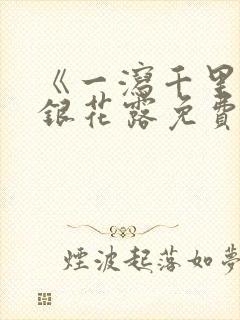 《一瀉千里
銀花露免費
煙波起落如夢